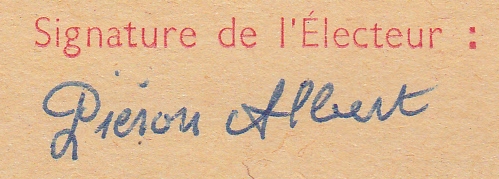 Signature de l'Électeur :
Piéron Albert